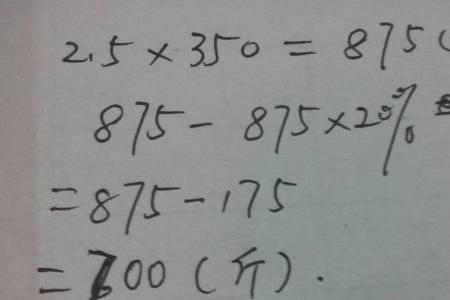 2.5×350=875(
875-875×20%
=875-175
=700(斤).